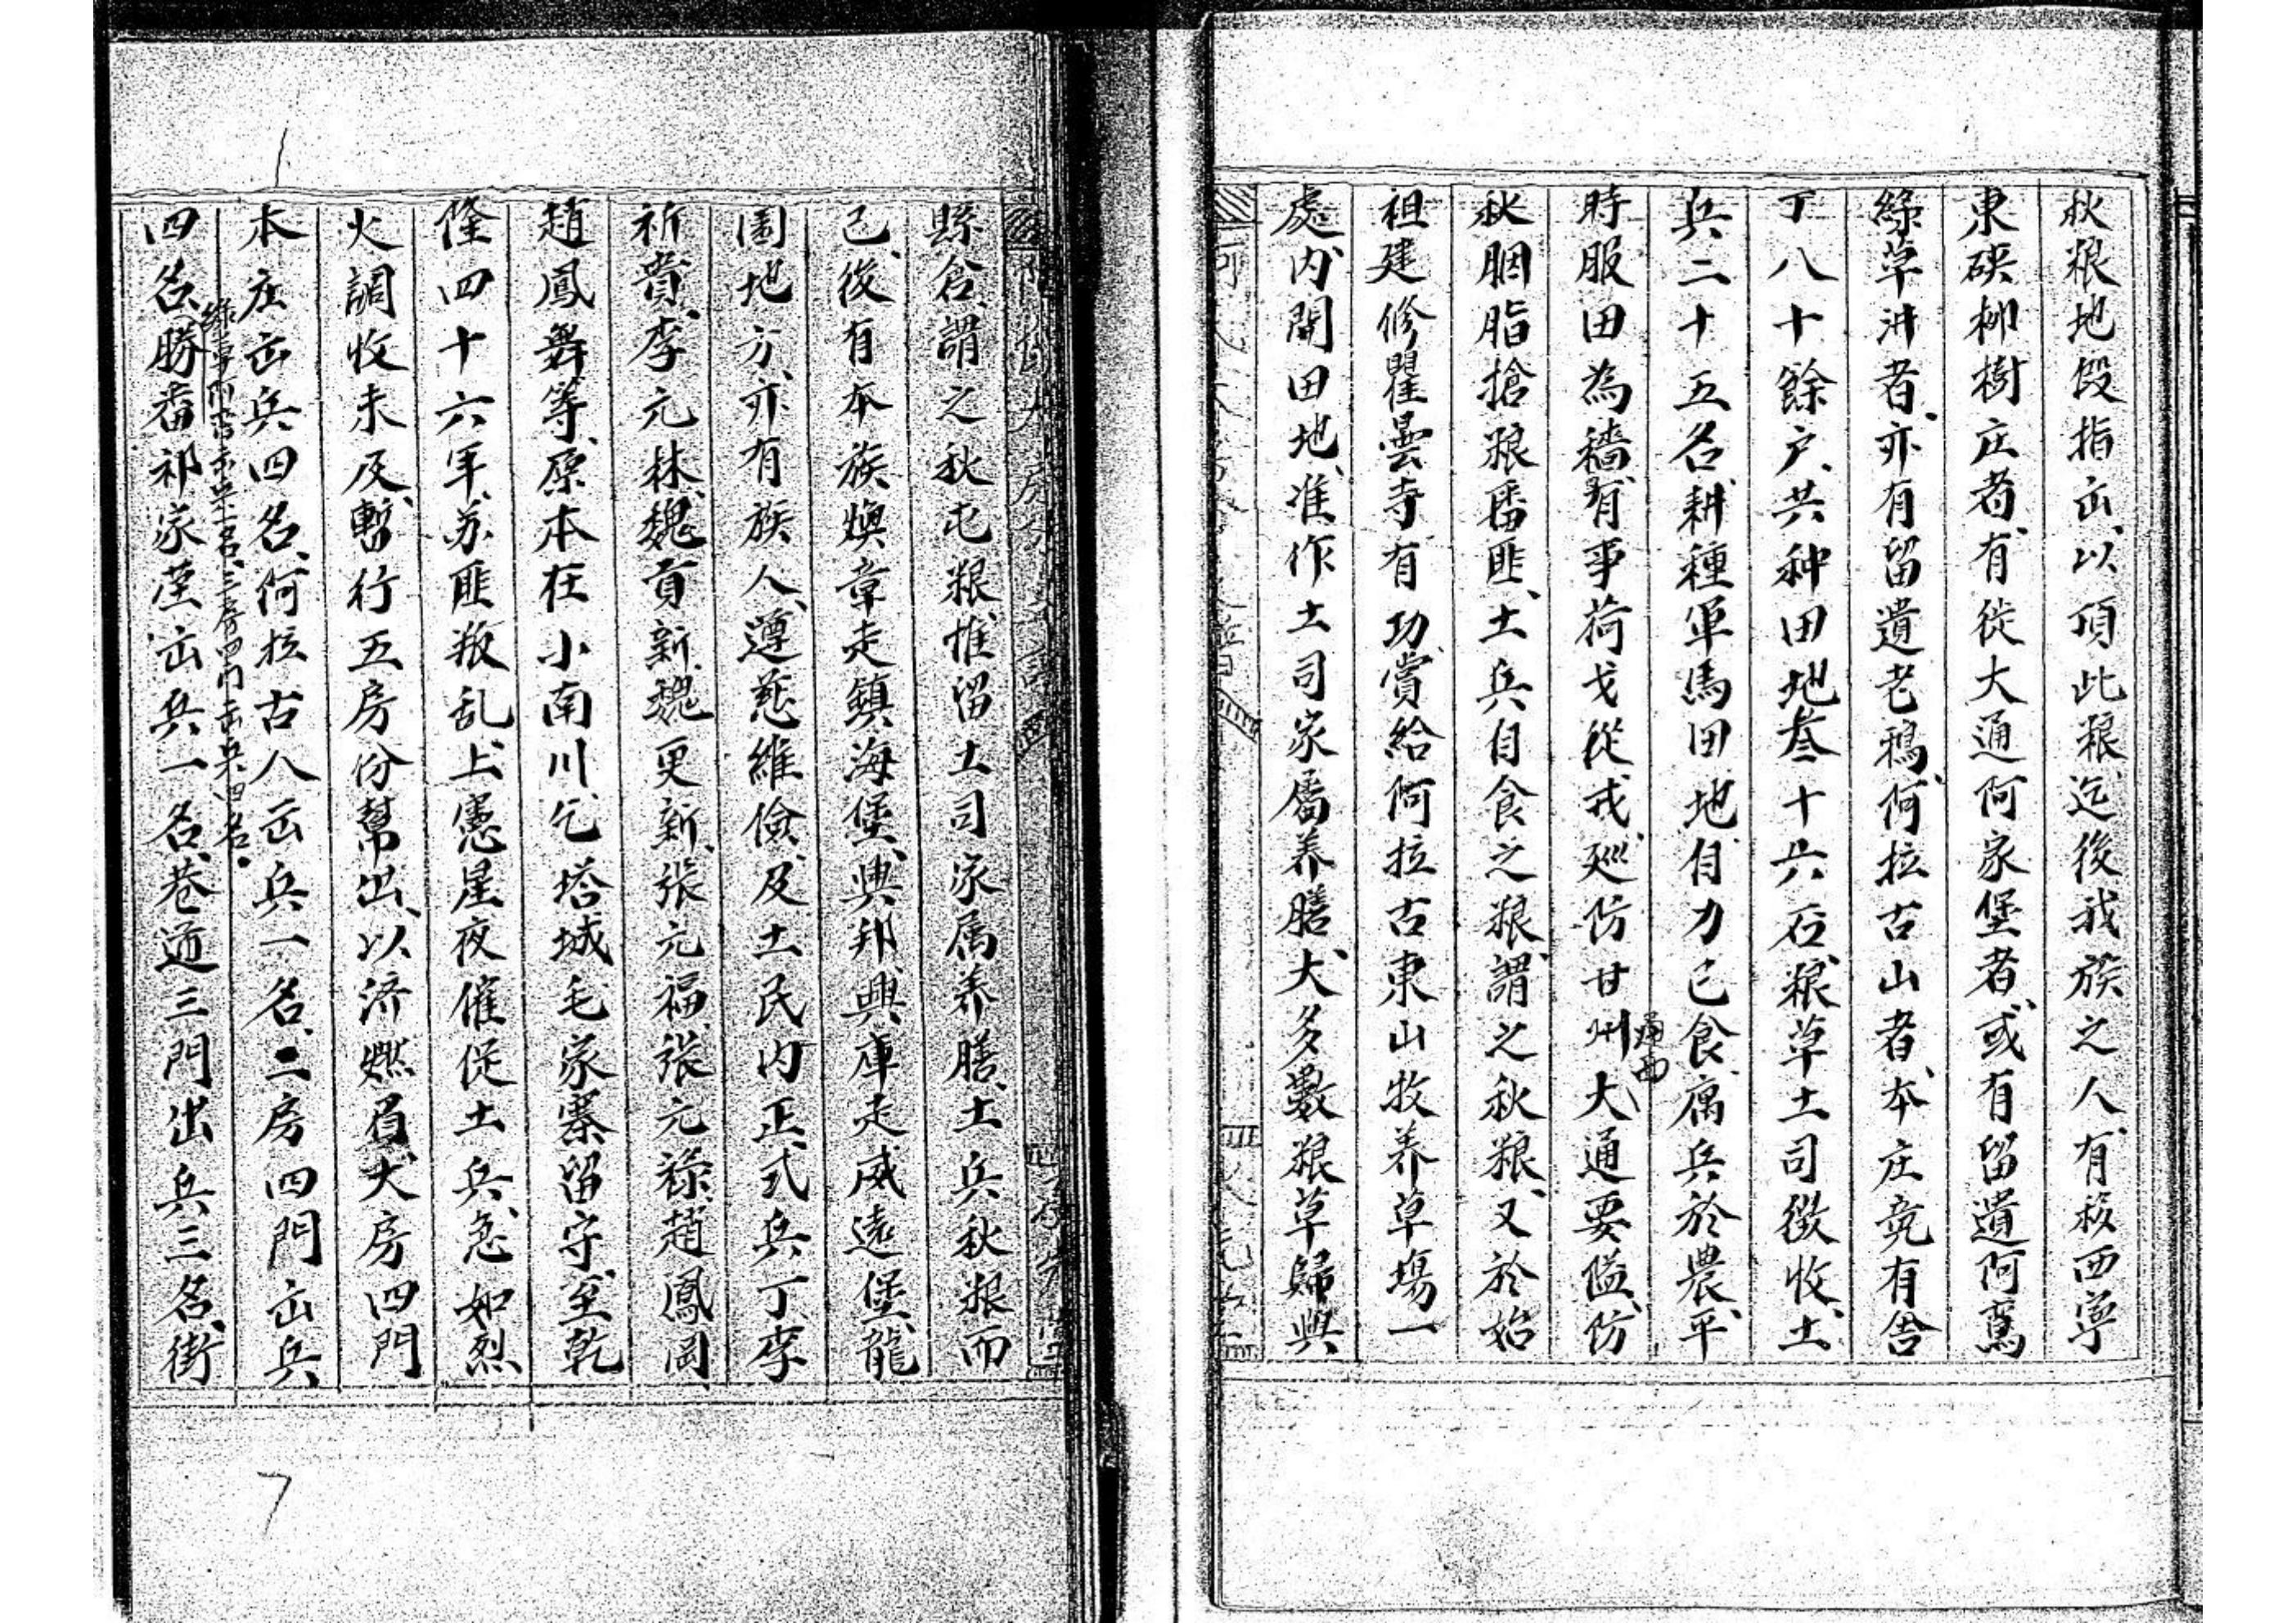 秋粮地段指出、以頂此粮、迄後我族之人、有移西寧
東硤柳樹庄者、有徙大通阿家堡者、或有留遺阿鸞
綠草汫者、亦有留遺老鴉、何拉古山者、本庄竟有舍
丁八十餘户、共种田地叁十六石、粮草土司徴收、土
兵二十五名、耕種軍馬田地、自力己食、寓兵於農、平
時服田為穡、有事荷戈從戎、廵防甘州大通要隘、防
碾西
秋胭脂搶粮番匪、土兵自食之粮、謂之秋粮、又於始
祖建修瞿曇寺有功、賞給何拉古東山牧养草塲一
處、内閒田地、准作土司家属养膳、大多數粮草歸與
縣倉、謂之秋屯粮、惟留土司家属养膳、土兵秋粮而
已、後有本族煥章走鎮海堡、興邦、興庫走威遠堡、龍
圖地方、亦有族人、遵慈維儉、及土民内正式兵丁、李
祈貴、李元林、魏貢新、魏更新、張元福、張元祿、趙鳳岡
趙鳳舞等、原本在小南川乞塔城毛家寨留守、至乾
隆四十六年、苏匪叛乱、上憲星夜催促土兵、急如烈
火、調收未及、暫行五房份幫出、以济燃眉、大房四門
本庄出兵四名、何拉古八出兵一名、二房四門出兵
四名、勝番祁家𦲷出兵一名、巷道三門出兵三名、街